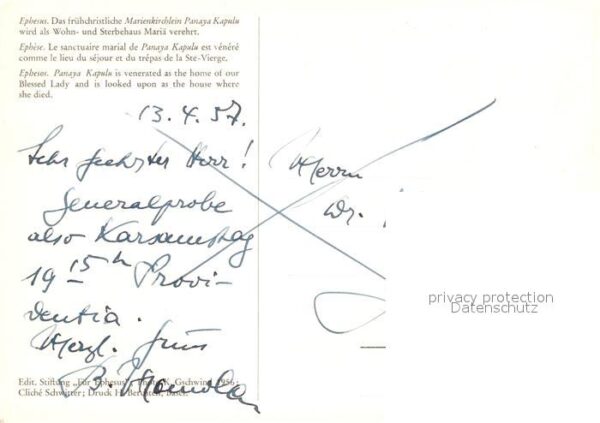 Ephesus. Das frühchristliche Marienkirchlein Panaya Kapulu
wird als Wohn- und Sterbehaus Mariä verehrt.
Ephèse. Le sanctuaire marial de Panaya Kapulu est vénéré
comme le lieu du séjour et du trépas de la Ste-Vierge.
Ephesos. Panaya Kapulu is venerated as the home of our
Blessed Lady and is looked upon as the house where
she died.
13.4.57.
Sehr geehrter Herr!
Generalprobe
also Karsamstag
19 15 h Provi-
dentia.
Herzl. Gruss
B.
Edit. Stiftung „Für Ephesus" Photo K. Gschwind 1956;
Cliché Schwitter; Druck H. Basel.
Herrn
Dr.
privacy protection
Datenschutz